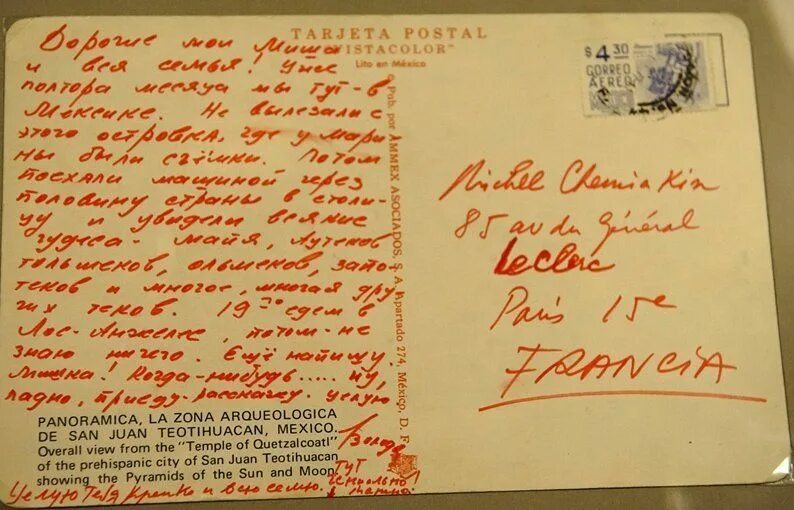 TARJETA POSTAL
"VISTACOLOR"
Lito en México
Дорогие мои Миша
и вся семья! Уже
полтора месяца мы тут - в
Мексике. Не вылезали с
этого островка, где у Мари
ны были съёмки. Потом
поехали машиной через
половину страны в столи-
цу и увидели всякие
чудеса - майя, Ацтеков
тольтеков, ольмеков, запо-
теков и многое, многая дру
гих теков. 19го едем в
Лос-Анжелес, потом - не
знаю ничего. Ещё напишу.
Мишка! Когда-нибудь..... ну,
ладно, приеду - расскажу. Целую
Володя
PANORAMICA, LA ZONA ARQUEOLOGICA
DE SAN JUAN TEOTIHUACAN, MEXICO.
Overall view from the "Temple of Quetzalcoatl"
of the prehispanic city of San Juan Teotihuacan
showing the Pyramids of the Sun and Moon.
Целую Тебя крепко и всю семью.
ТУТ
Марина
© Pub. por AMMEX ASOCIADOS, S. A. Apartado 274, México, D. F.
$4.30
CORREO
AEREO
Michel Chemiakin
85 av du Général
Leclerc
Paris 15e
FRANCIA